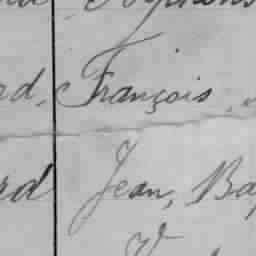 rd, François
rd Jean, Ba